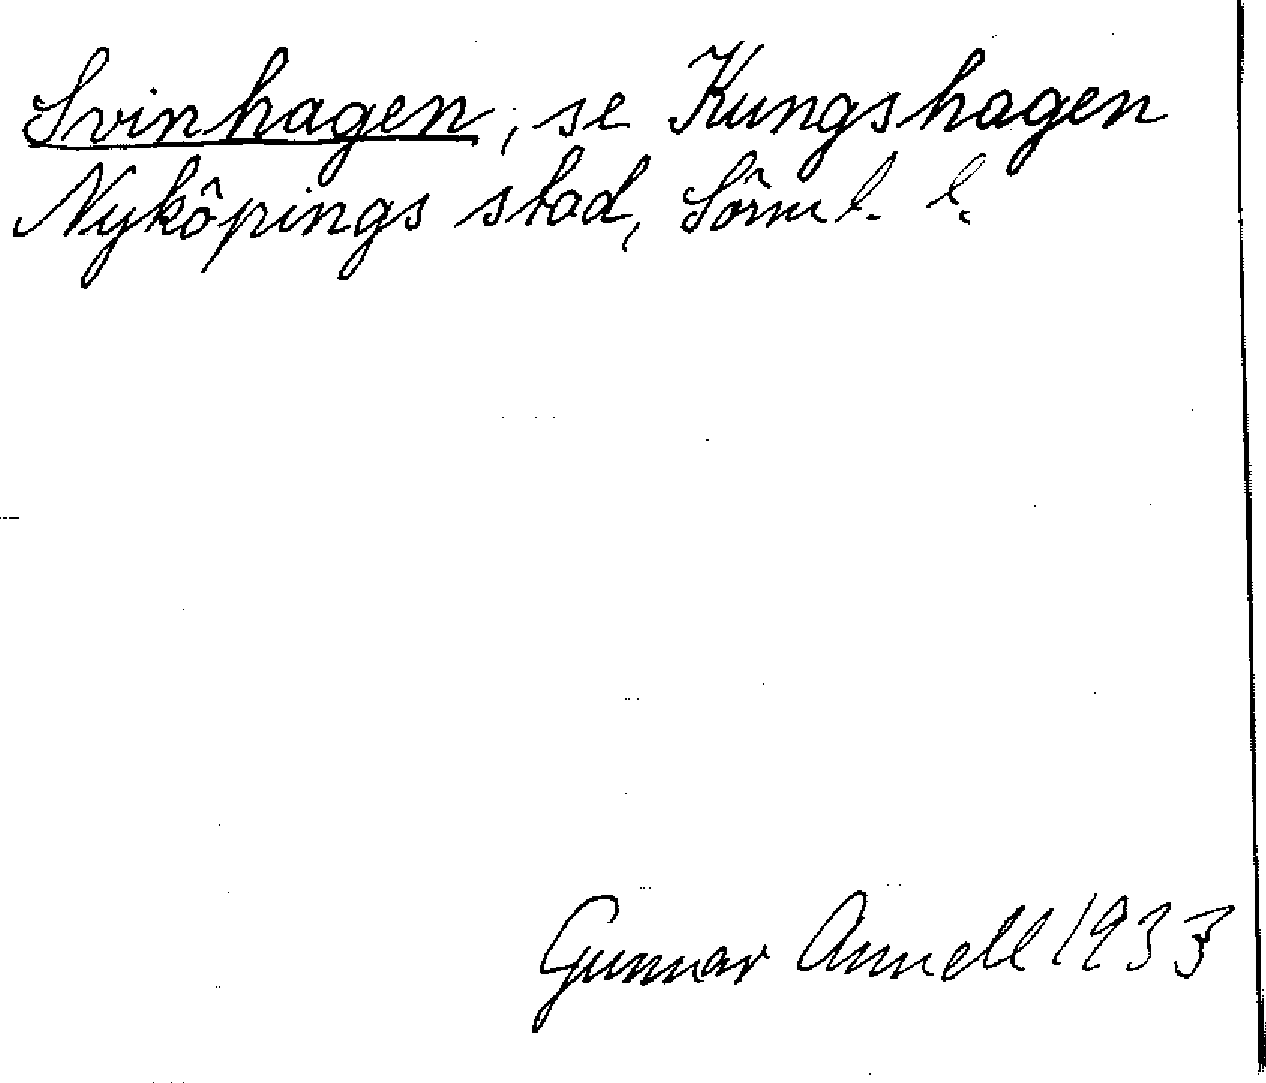 Svinhagen, se Kungshagen
Nyköpings stad, Sörml. l.
Gunnar Annell 1933